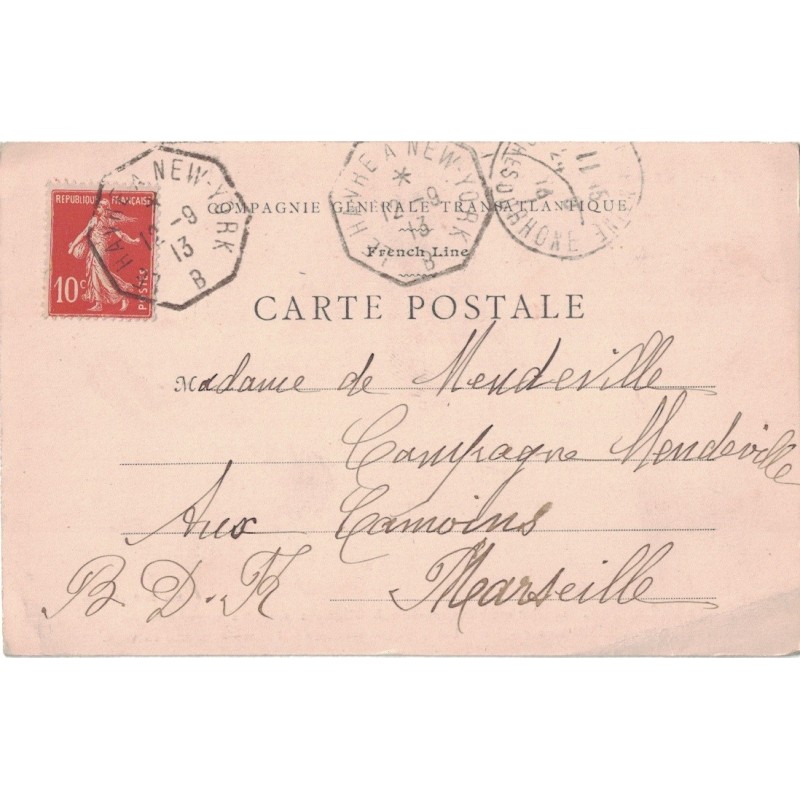 REPUBLIQUE FRANÇAISE
10c
POSTES
HAVRE A NEW-YORK
12 -9
13
B
LE HAVRE A NEW-YORK
*
12 -9
13
B
11
RHONE
COMPAGNIE GÉNÉRALE TRANSATLANTIQUE
French Line
CARTE POSTALE
Madame de Mendeville
Campagne Mendeville
Aux Camoins
B. D. R Marseille